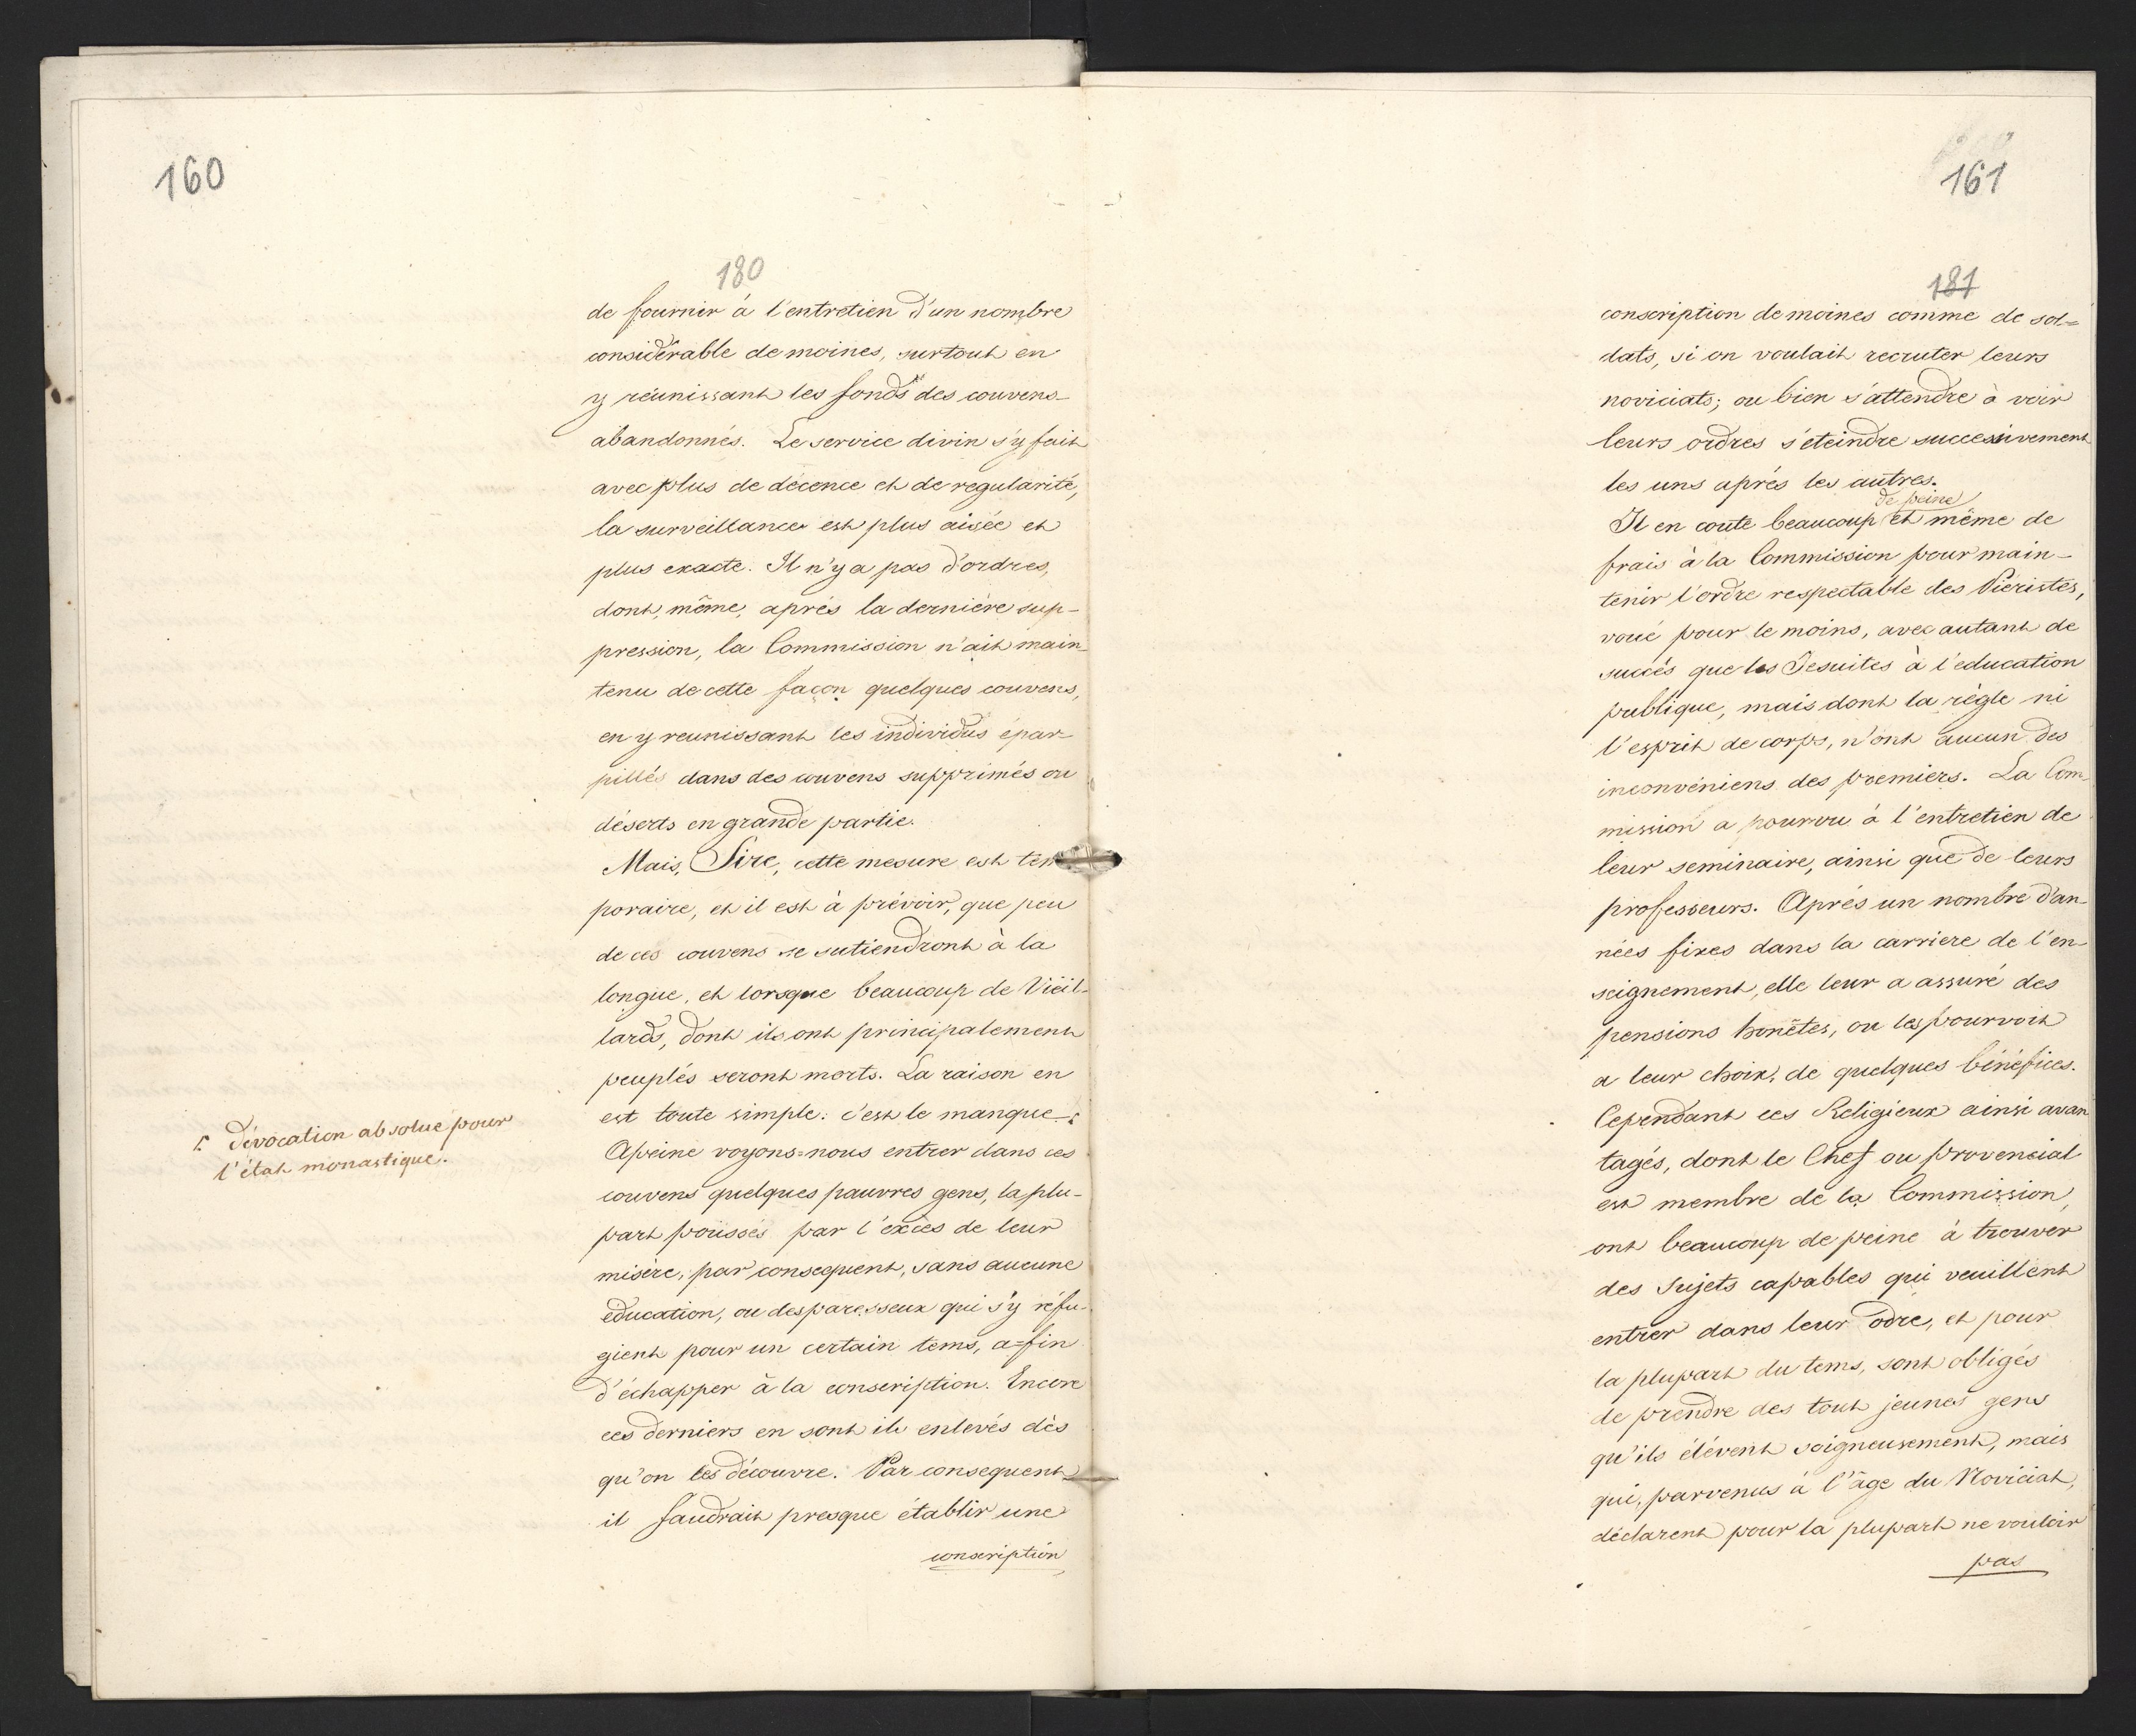 160
180
de fournir à l'entretien d'un nombre
considérable de moines, surtout en
y réunissant les fonds des couvens
abandonnés. Le service divin s'y fait
avec plus de décence et de regularité,
la surveillance est plus aisée et
plus exacte. Il n'y a pas d'ordres,
dont, même, aprés la derniére sup-
pression, la Commission n'ait main-
tenu de cette façon quelques couvens,
en y reunissant les individus épar-
pillés dans des couvens supprimés ou
déserts en grande partie.
Mais, Sire, cette mesure est tem
poraire, et il est à prévoir, que peu
de ces couvens se sutiendront à la
longue, et lorsque beaucoup de Vieil-
lards, dont ils ont principalement
peuplés seront morts. La raison en
est toute simple: c'est le manque :
:. dévocation absolue pour
l'état monastique.
Apeine voyons=nous entrer dans ces
couvens quelques pauvres gens, la plu-
part poussés par l'excès de leur
misère, par consequent, sans aucune
education, ou des paresseux qui s'y réfu-
gient pour un certain tems, a=fin
d'échapper à la conscription. Encore
ces derniers en sont ils enlevés dès
qu'on les découvre. Par consequent
il faudrait presque établir une
conscription
161
181
conscription de moines comme de sol=
dats, si on voulait recruter leurs
noviciats; ou bien s'attendre à voir
leurs ordres s'éteindre successivement
les uns aprés les autres.
de peine
Il en coute beaucoup et même de
frais à la Commission pour main-
tenir l'ordre respectable des Piéristes,
voué pour le moins, avec autant de
succés que les Jesuites à l'education
publique, mais dont la règle ni
l'esprit de corps, n'ont aucun des
inconvéniens des premiers. La Com-
mission a pourvu à l'entretien de
leur seminaire, ainsi que de leurs
professeurs. Aprés un nombre d'an-
nées fixes dans la carriere de l'en-
seignement, elle leur a assuré des
pensions honêtes, ou les pourvoit
a leur choix, de quelques bénéfices.
Cependant ces Religieux ainsi avan
tagés, dont le Chef ou provencial
est membre de la Commission,
ont beaucoup de peine à trouver
des Sujets capables qui veuillent
entrer dans leur odre, et pour
la plupart du tems, sont obligés
de prendre des tout jeunes gens
qu'ils élévent soigneusement, mais
qui, parvenus à l'âge du Noviciat,
déclarent pour la plupart ne vouloir
pas